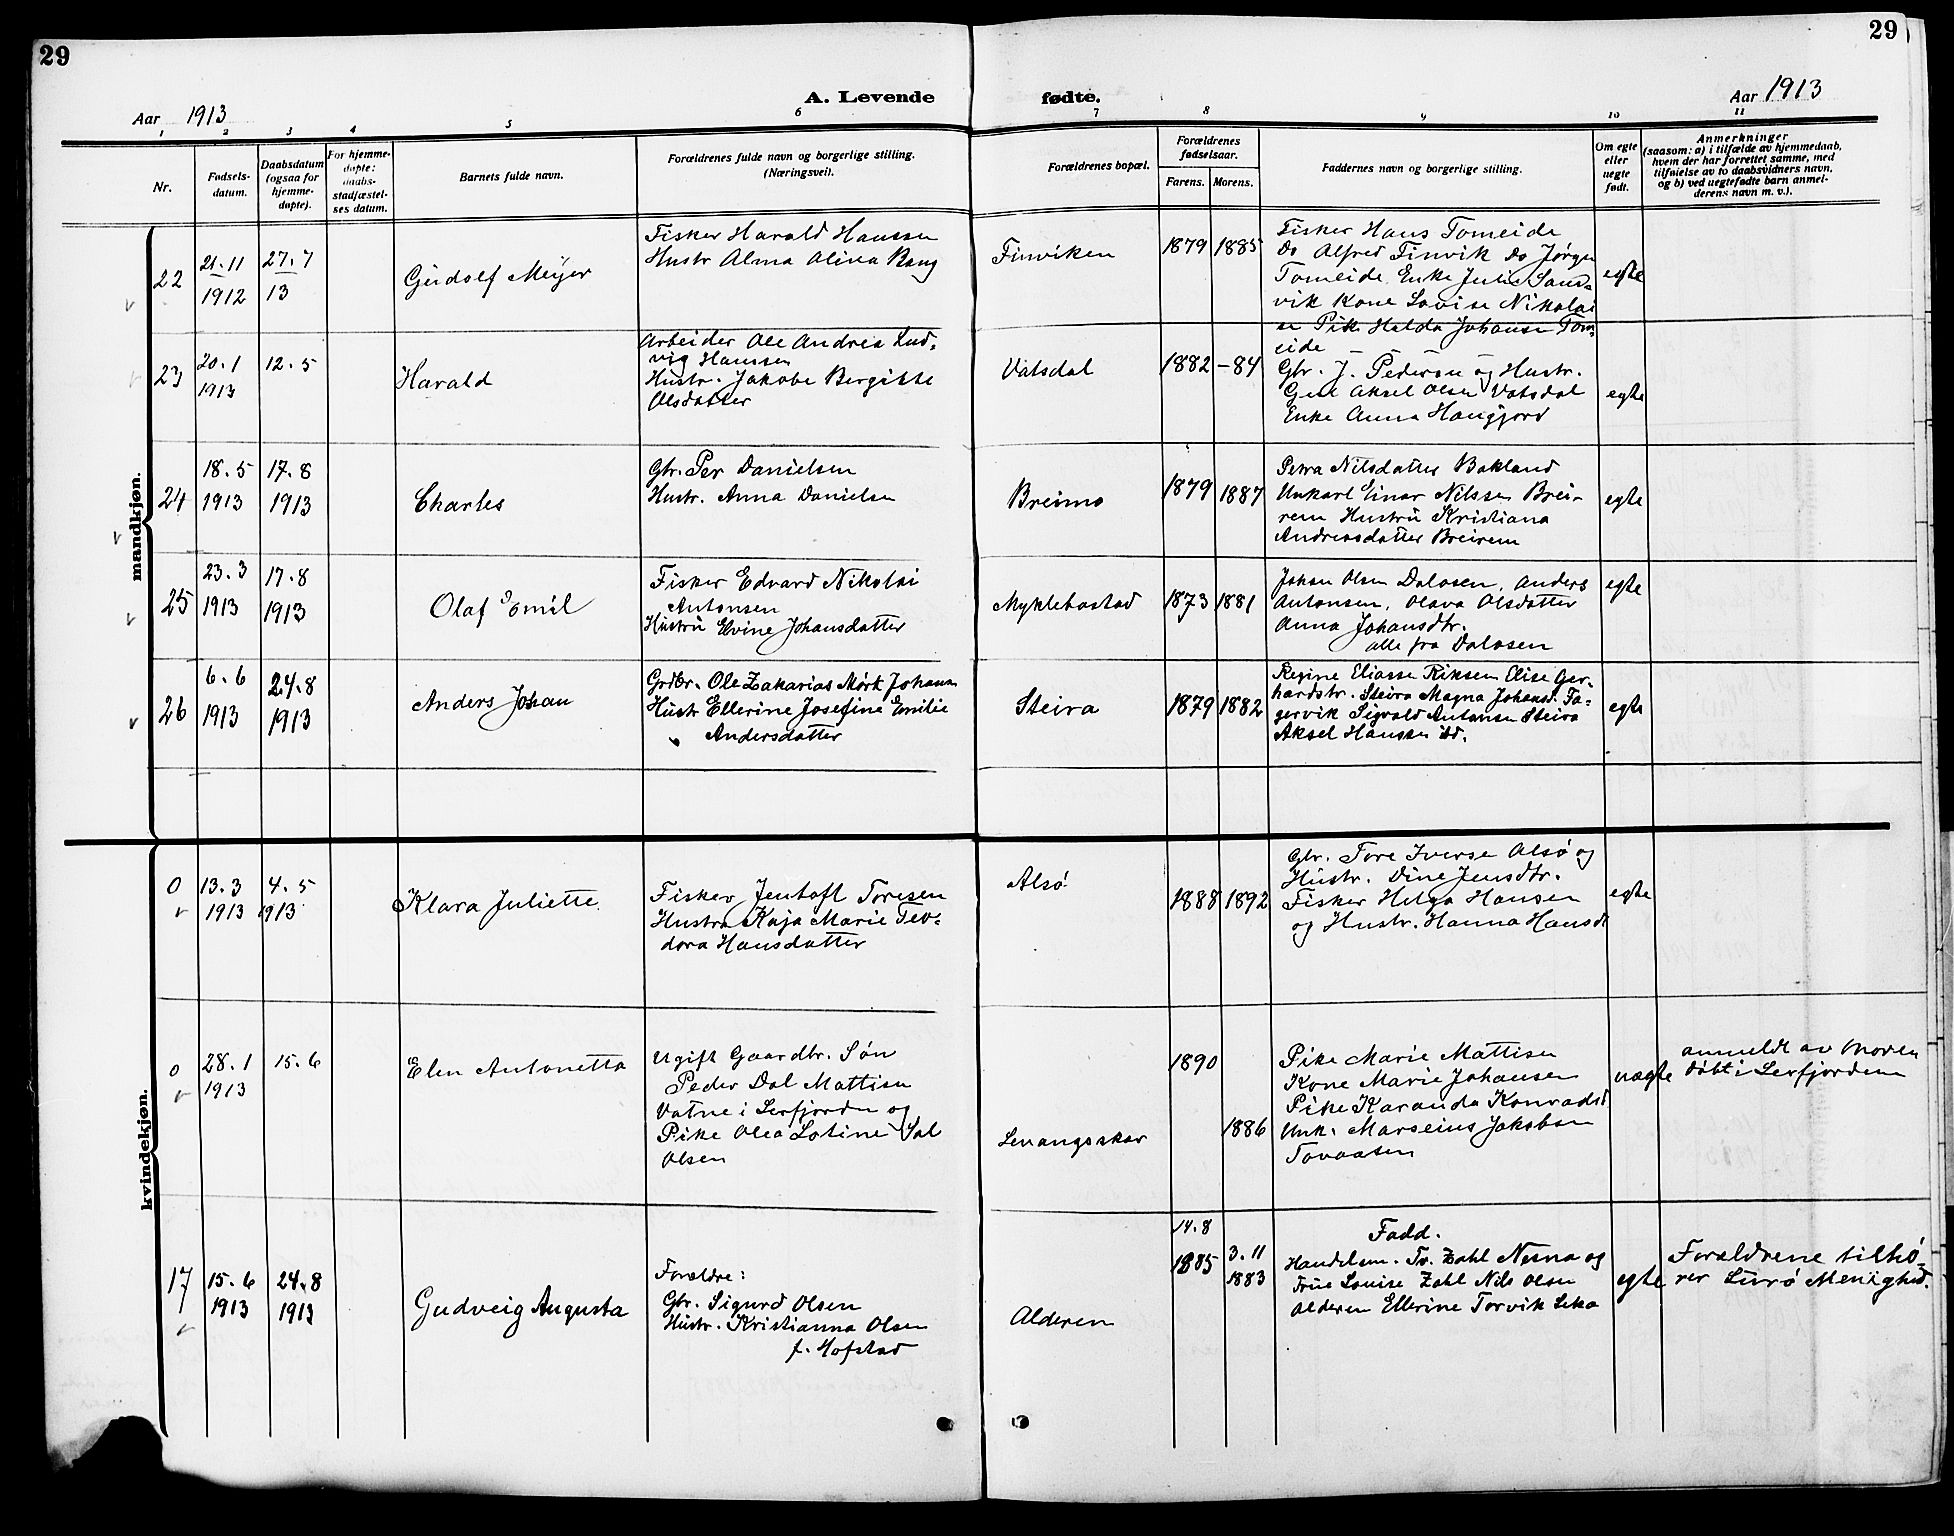 29
29
Aar 1913
A. Levende
fødte.
Aar 1913
1 2 3 4 5 6 7 8 9 10 11
Nr.
Fødsels-
datum.
Daabsdatum
(ogsaa for
hjemme-
døpte).
For hjemme-
døpte:
daabs-
stadfæstel-
ses datum.
Barnets fulde navn.
Forældrenes fulde navn og borgerlige stilling.
(Næringsvei).
Forældrenes bopæl.
Forældrenes
fødselsaar.
Farens. Morens.
Faddernes navn og borgerlige stilling.
Om egte
eller
uegte
født.
Anmerkninger
(saasom: a) i tilfælde av hjemmedaab,
hvem der har forrettet samme, med
tilføielse av to daabsvidners navn,
og b) ved uegtefødte barn anmel-
derens navn m. v.).
mandkjøn.
22
21.11
1912
27.7
13
Gudolf Meyer
Fisker Harald Hanssen
Hustr Alma Olina Bang
Finviken
1879 1885
Fisker Hans Tomeide
Do Alfred Finvik Do Jørgen
Tomeide. Enke Julie Sand-
vik Kone Lovise Nikolai
se Pike Halda Johansen Tom-
eide
egte
23
20.1
1913
12.5
Harald
Arbeider Ole Andrea Lud-
vig Hanssen
Hustr. Jakobe Bergitte
Olsdatter
Vatsdal
1882 -84
Gbr. J. Pedersen og Hustr.
Aksel Olsen Vatsdal
Enke Anna Haugfjord
egte
24
18.5
1913
17.8
1913
Charles
Gbr. Per Danielsen
Hustr. Anna Danielsen
Breimo
1879 1887
Petra Nilsdatter Bakland
Unkarl Einar Nilssen Brei-
rem Hustru Kristiana
Andreasdatter Breirem
egte
25
23.3
1913
17.8
1913
Olaf Emil
Fisker Edvard Nikolai
Antonsen
Hustru Elvine Johansdatter
Myklebostad
1873 1881
Johan Olsen Dalosen, Anders
Antonsen, Olava Olsdatter
Anna Johansdtr.
alle fra Dalosen
egte
26
6.6
1913
24.8
1913
Anders Johan
Grdbr. Ole Zakarias Mørk Johansen
Hustr Ellerine Josefine Emilie
Andersdatter
Steira
1879 1882
Regine Eliasse Riksen Elise Ger-
hardstr. Steira Magna Johansd. Fa-
gervik Sigvald Antonsen Steira
Aksel Hanssen sd.
egte
kvindekjøn.
0
13.3
1913
4.5
1913
Klara Juliette
Fisker Jentoft Toresen
Hustru Kaja Marie Teo-
dora Hansdatter
Alsø
1888 1892
Gbr. Tore Iversen Alsø og
Hustr. Dine Jensdtr.
Fisker Helge Hansen
og Hustr. Hanna Hansdt
egte
0
28.1
1913
15.6
Elen Antonetta
Ugift Gaardbr. Søn
Peder Dal Mattisen
Vatne i Lerfjorden og
Pike Olea Lotine Sal
Olsen
Levangsskar
1890
1886
Pike Marie Mattisen
Kone Marie Johansen
Pike Karanda Konradsd
Unk. Marseius Jakobsen
Tovaasen
uegte
anmeldt av Moren
døbt i Lerfjorden
17
15.6
1913
24.8
1913
Gudveig Augusta
Forældre:
Gbr. Sigurd Olsen
Hustr. Kristianna Olsen
f. Hofstad
Alderen
14.8
1885
3.11
1883
Fadd.
Handelsm. Tr. Zahl Nesna og
Frue Louise Zahl Nils Olsen
Alderen Ellerine Torvik Leka
egte
Forældrene tilhø-
rer Lurø Menighed.